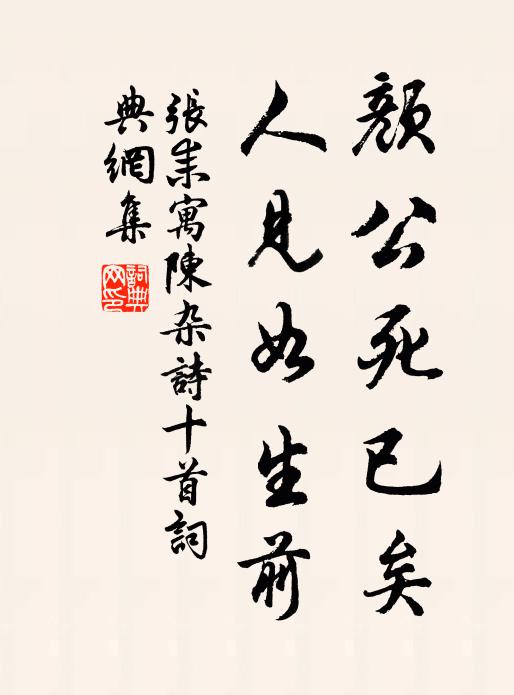 顏公死已矣
人見如生前
張耒寓陳杂詩十首詞
典網集
詞典
网印